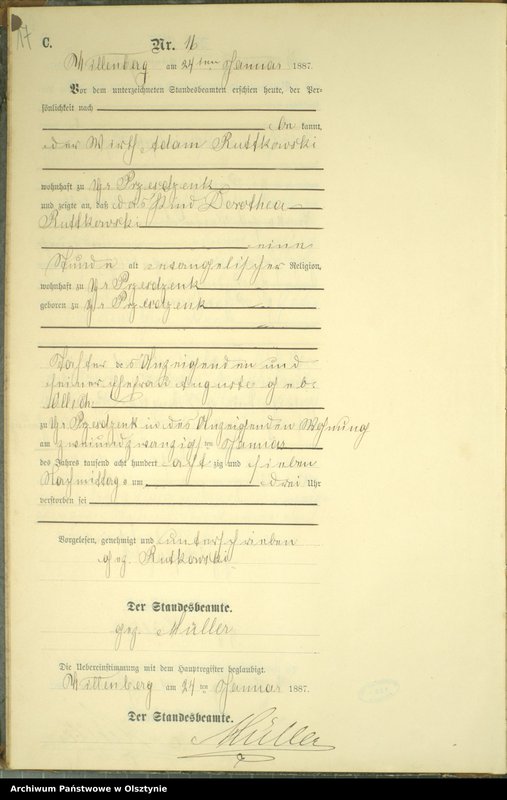 17
C.
Nr. 16
Willenberg am 24ten Januar 1887.
Vor dem unterzeichneten Standesbeamten erschien heute, der Per-
sönlichkeit nach
be kannt,
der Wirth Adam Ruttkowski
wohnhaft zu Gr Przesdzenk
und zeigte an, daß das Kind Dorothea
Ruttkowski
eine
Stunde alt evangelischer Religion,
wohnhaft zu Gr Przesdzenk
geboren zu Gr Przesdzenk
Tochter des Anzeigenden und
seiner Ehefrau Auguste geb.
zu Gr Przesdzenk in des Anzeigenden Wohnung
am zweiundzwanzigsten Januar
des Jahres tausend acht hundert acht zig und sieben
Nachmittags um drei Uhr
verstorben sei
Vorgelesen, genehmigt und unterschrieben
gez. Rutkowski
Der Standesbeamte.
gez. Müller
Die Uebereinstimmung mit dem Hauptregister beglaubigt.
Willenberg am 24ten Januar 1887.
Der Standesbeamte.
Müller
Archiwum Państwowe w Olsztynie